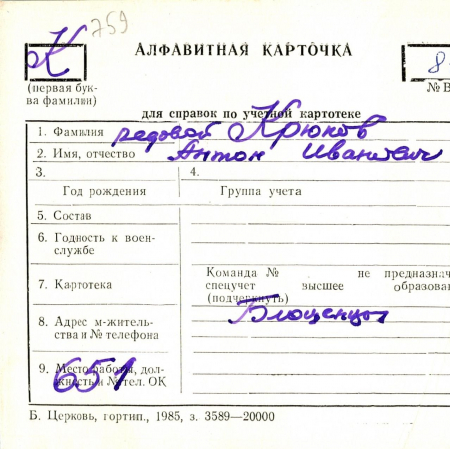 К 759
АЛФАВИТНАЯ КАРТОЧКА
8
(первая бук-
ва фамилии)
№ В
для справок по учетной картотеке
1. Фамилия рядовой Крюков
2. Имя, отчество Антон Иванович
3. 4.
Год рождения Группа учета
5. Состав
6. Годность к воен-
службе
7. Картотека
Команда № не предназнач
спецучет высшее образова
(подчеркнуть)
8. Адрес м-житель-
ства и № телефона
Блощенцы
9. Место работы, дол-
жность и № тел. ОК
651
Б. Церковь, гортип., 1985, з. 3589—20000